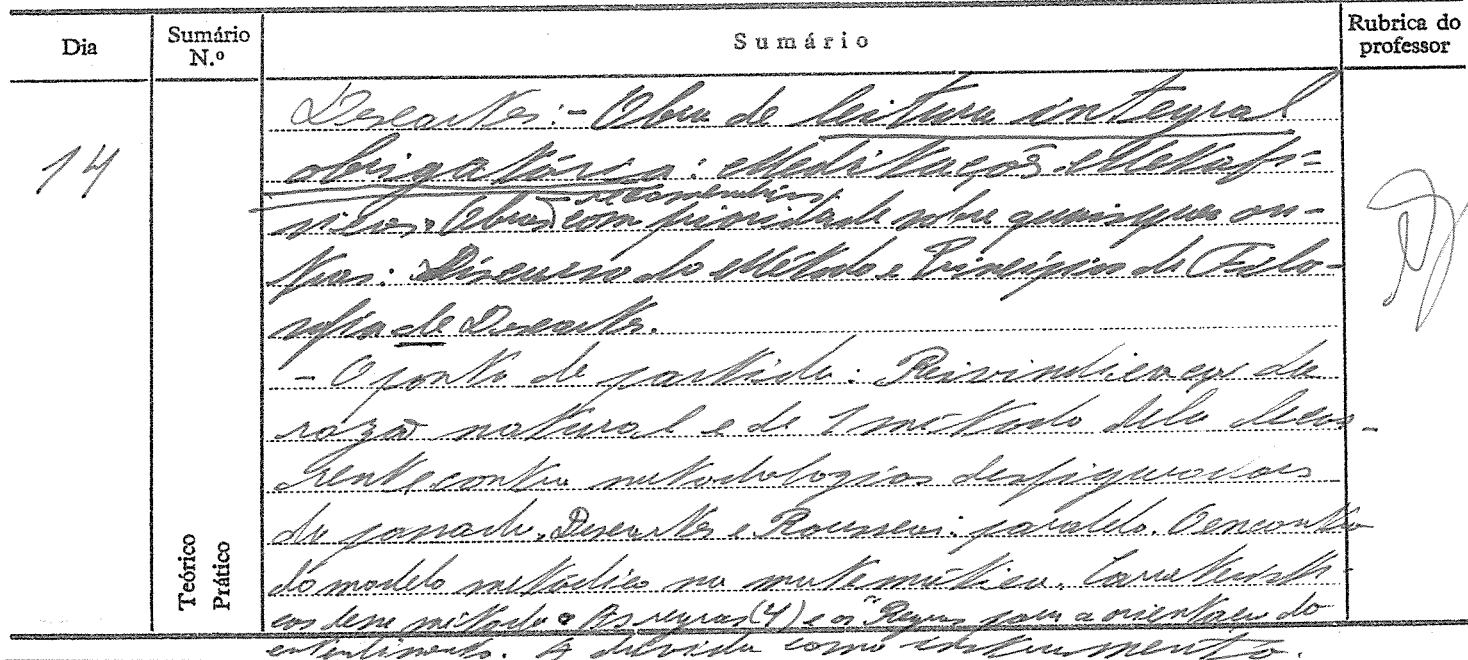 Dia
Sumário N.º
Sumário
Rubrica do professor
14
Descartes: - Obra de leitura integral
obrigatória: Meditações Metafí=
sicas. Obras recomendadas com prioridade sobre quaisquer ou-
tras: Discurso do Método e Princípios de Filo-
sofia de Descartes.
- O ponto de partida: Reivindicação da
razão natural e de 1 método dela decor-
rente contra metodologias desfiguradoras
do passado. Descartes e Rousseau: paralelo. O encontro
do modelo metódico na matemática. Característi
cas desse método. As regras (4) e as "Regras para a orientação do
entendimento. A dúvida como instrumento.
Teórico
Prático